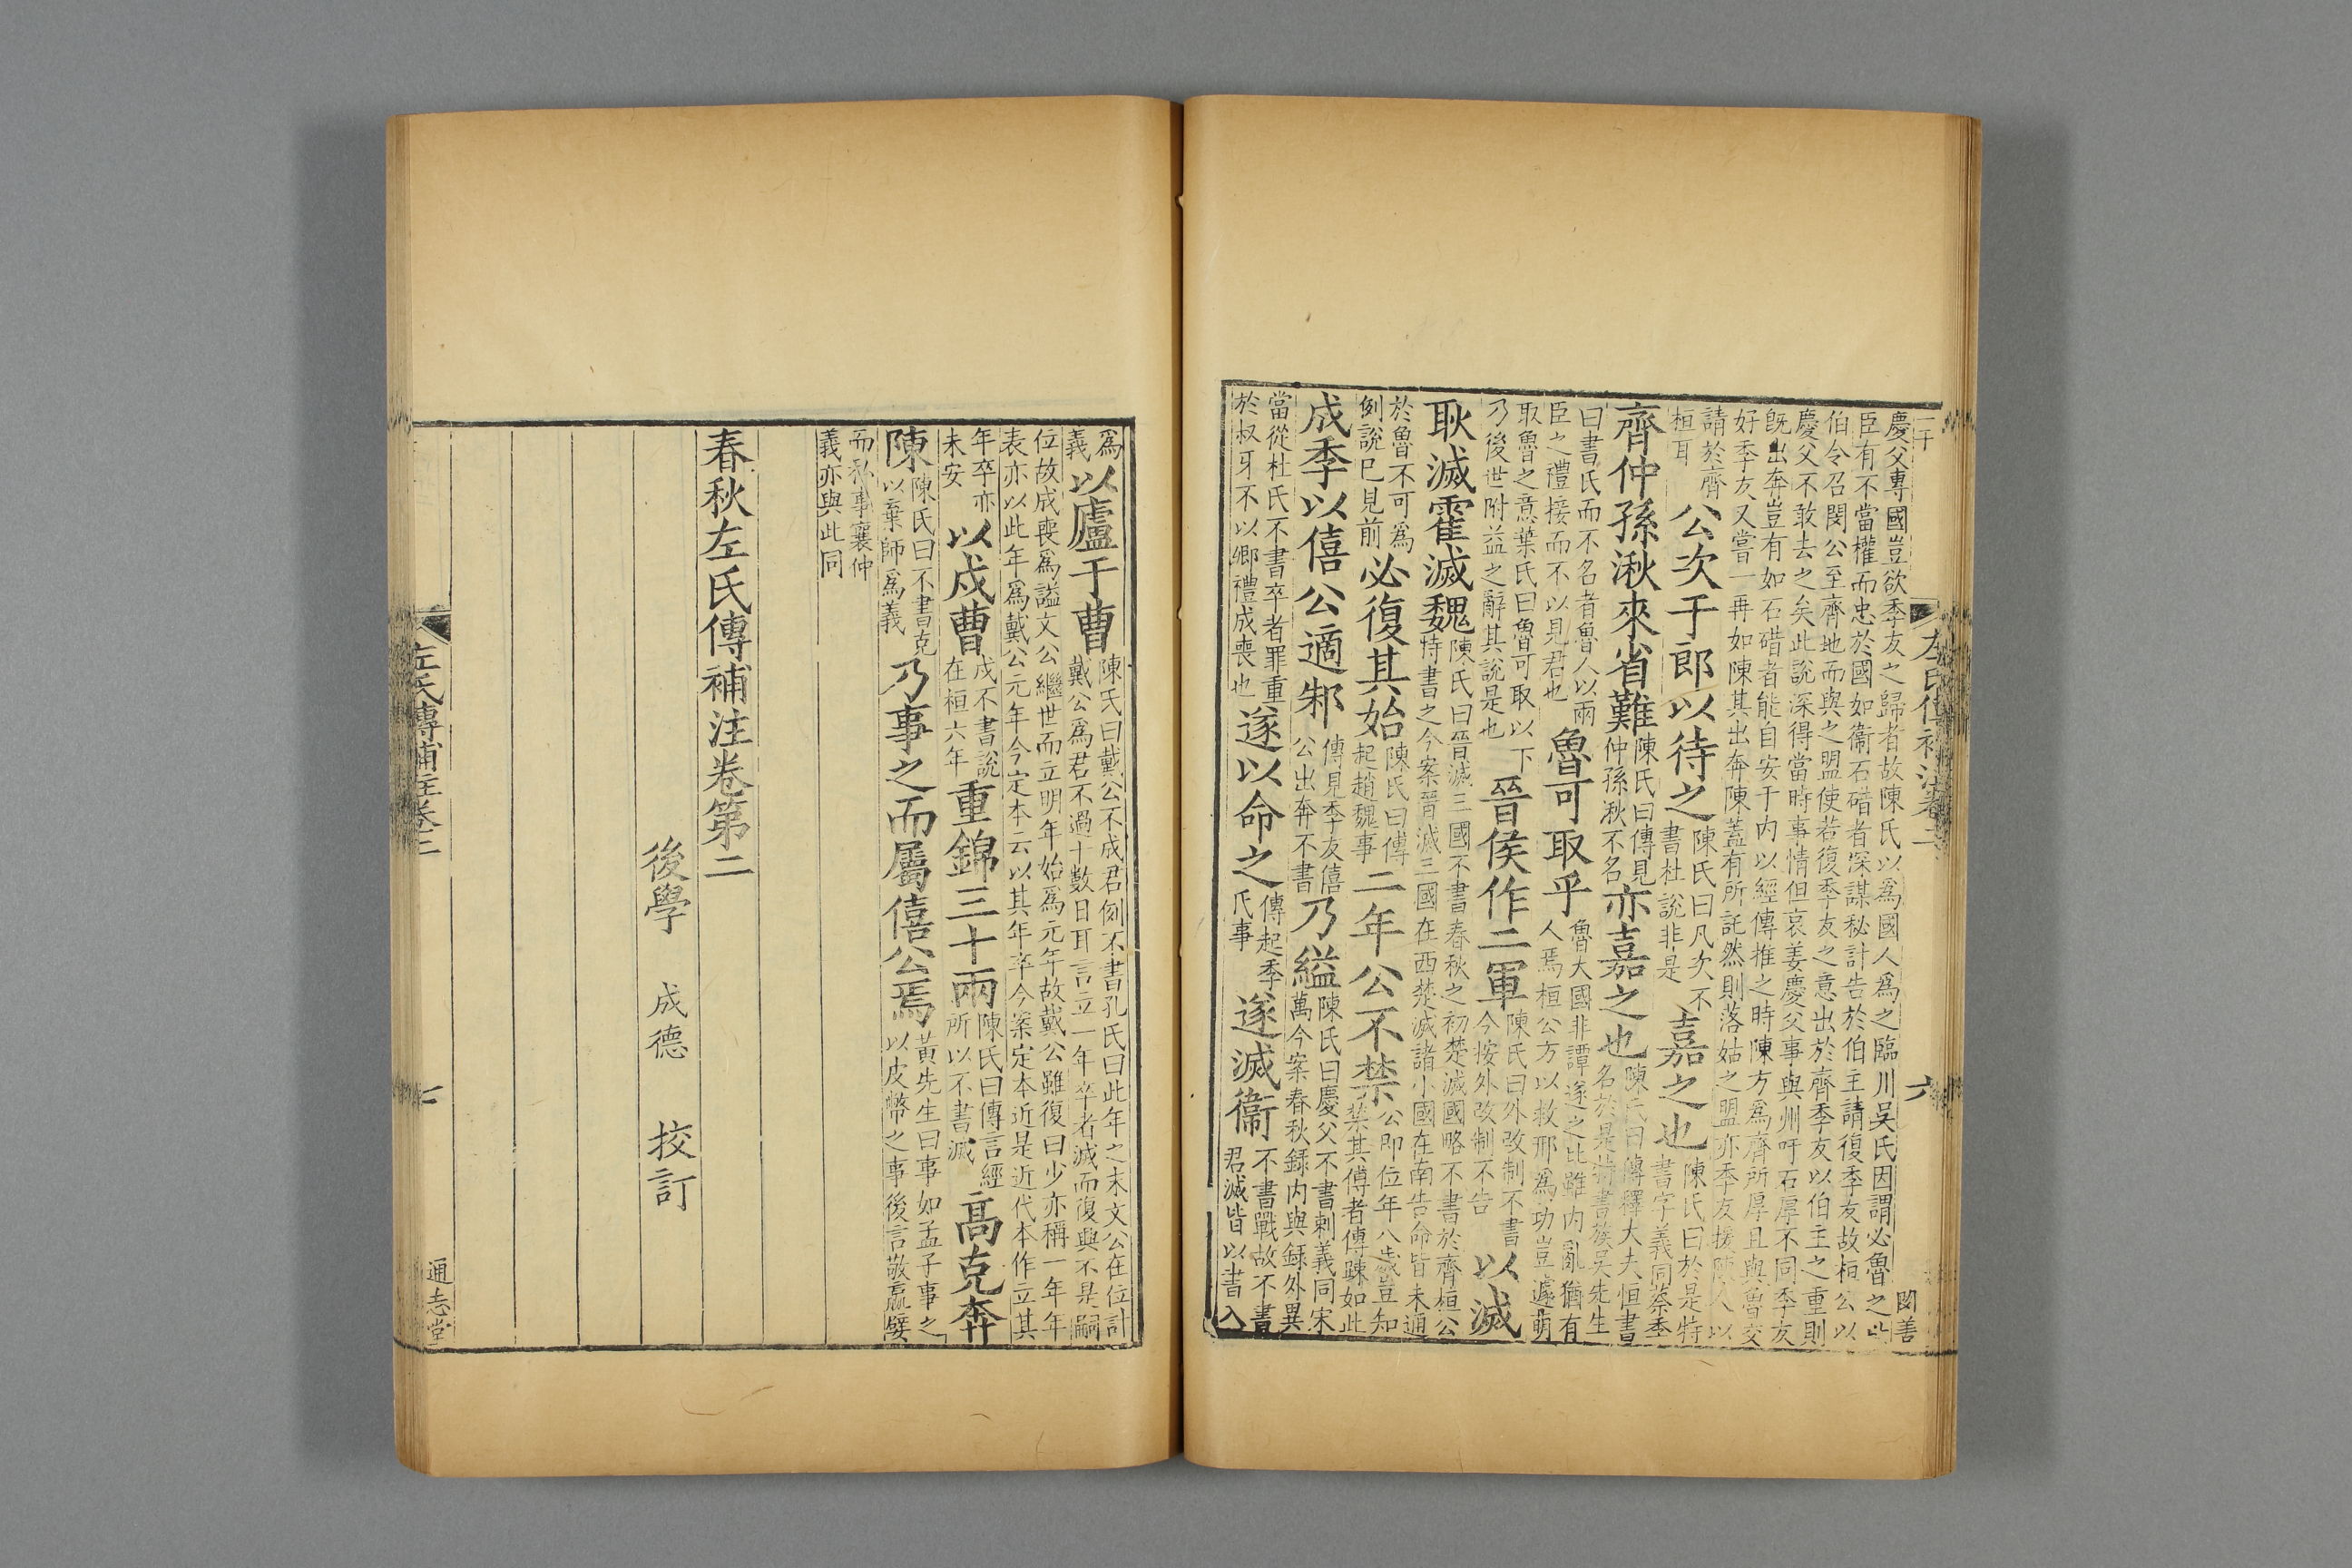 慶父專國豈欲季友之歸者故陳氏以爲國人爲之臨川吳氏因謂必魯之
臣有不當權而忠於國如衞石碏者深謀秘計告於伯主請復季友故桓公以
伯令召閔公至齊地而與之盟使若復季友之意出於齊季友以伯主之重則
慶父不敢去之矣此說深得當時事情但哀姜慶父事與州吁石厚不同季友
旣出奔豈有如石碏者能自安于內以經傳推之時陳方爲齊所厚且與魯交
好季友又嘗一再如陳其出奔陳蓋有所託然則落姑之盟亦季友援陳人以
請於齊
桓耳
公次于郎以待之
陳氏曰凡次不
書杜說非是
嘉之也
陳氏曰於是特
書字義同蔡季
齊仲孫湫來省難
陳氏曰傳見
仲孫湫不名
亦嘉之也
陳氏曰傳釋大夫恒書
名於是特書族吳先生
曰書氏而不名者魯人以兩
臣之禮接而不以見君也
魯可取乎
魯大國非譚遂之比雖內亂猶有
人焉桓公方以救邢爲功豈遽萌
取魯之意葉氏曰魯可取以下
乃後世附益之辭其說是也
晉侯作二軍
陳氏曰外改制不書
今按外改制不告
以滅
耿滅霍滅魏
陳氏曰晉滅三國不書春秋之初楚滅國略不書於齊桓公
特書之今案晉滅三國在西楚滅諸小國在南告命皆未通
於魯不可爲
例說已見前
必復其始
陳氏曰傳
起趙魏事
二年公不禁
公即位年八歲豈知
禁其傅者傳疎如此
成季以僖公適邾
傳見季友僖
公出奔不書
乃縊
陳氏曰慶父不書刺義同宋
萬今案春秋錄內與錄外異
當從杜氏不書卒者罪重
於叔牙不以卿禮成喪也
遂以命之
傳起季
氏事
遂滅衞
不書戰故不書
君滅皆以書入
左氏傳補注卷二
六
爲
義
以廬于曹
陳氏曰戴公不成君例不書孔氏曰此年之末文公在位計
戴公爲君不過十數日耳言立一年卒者滅而復興不是嗣
位故成喪爲諡文公繼世而立明年始爲元年故戴公雖復曰少亦稱一年年
表亦以此年爲戴公元年今定本云以其年卒今案定本近是近代本作立其
年卒亦
未安
以戍曹
戍不書說
在桓六年
重錦三十兩
陳氏曰傳言經
所以不書滅
高克奔
陳
陳氏曰不書克
以棄師爲義
乃事之而屬僖公焉
黃先生曰事如孟子事之
以皮幣之事後言敬嬴嬖
而私事襄仲
義亦與此同
春秋左氏傳補注卷第二
後學　成德　挍訂
左氏傳補注卷二
通志堂